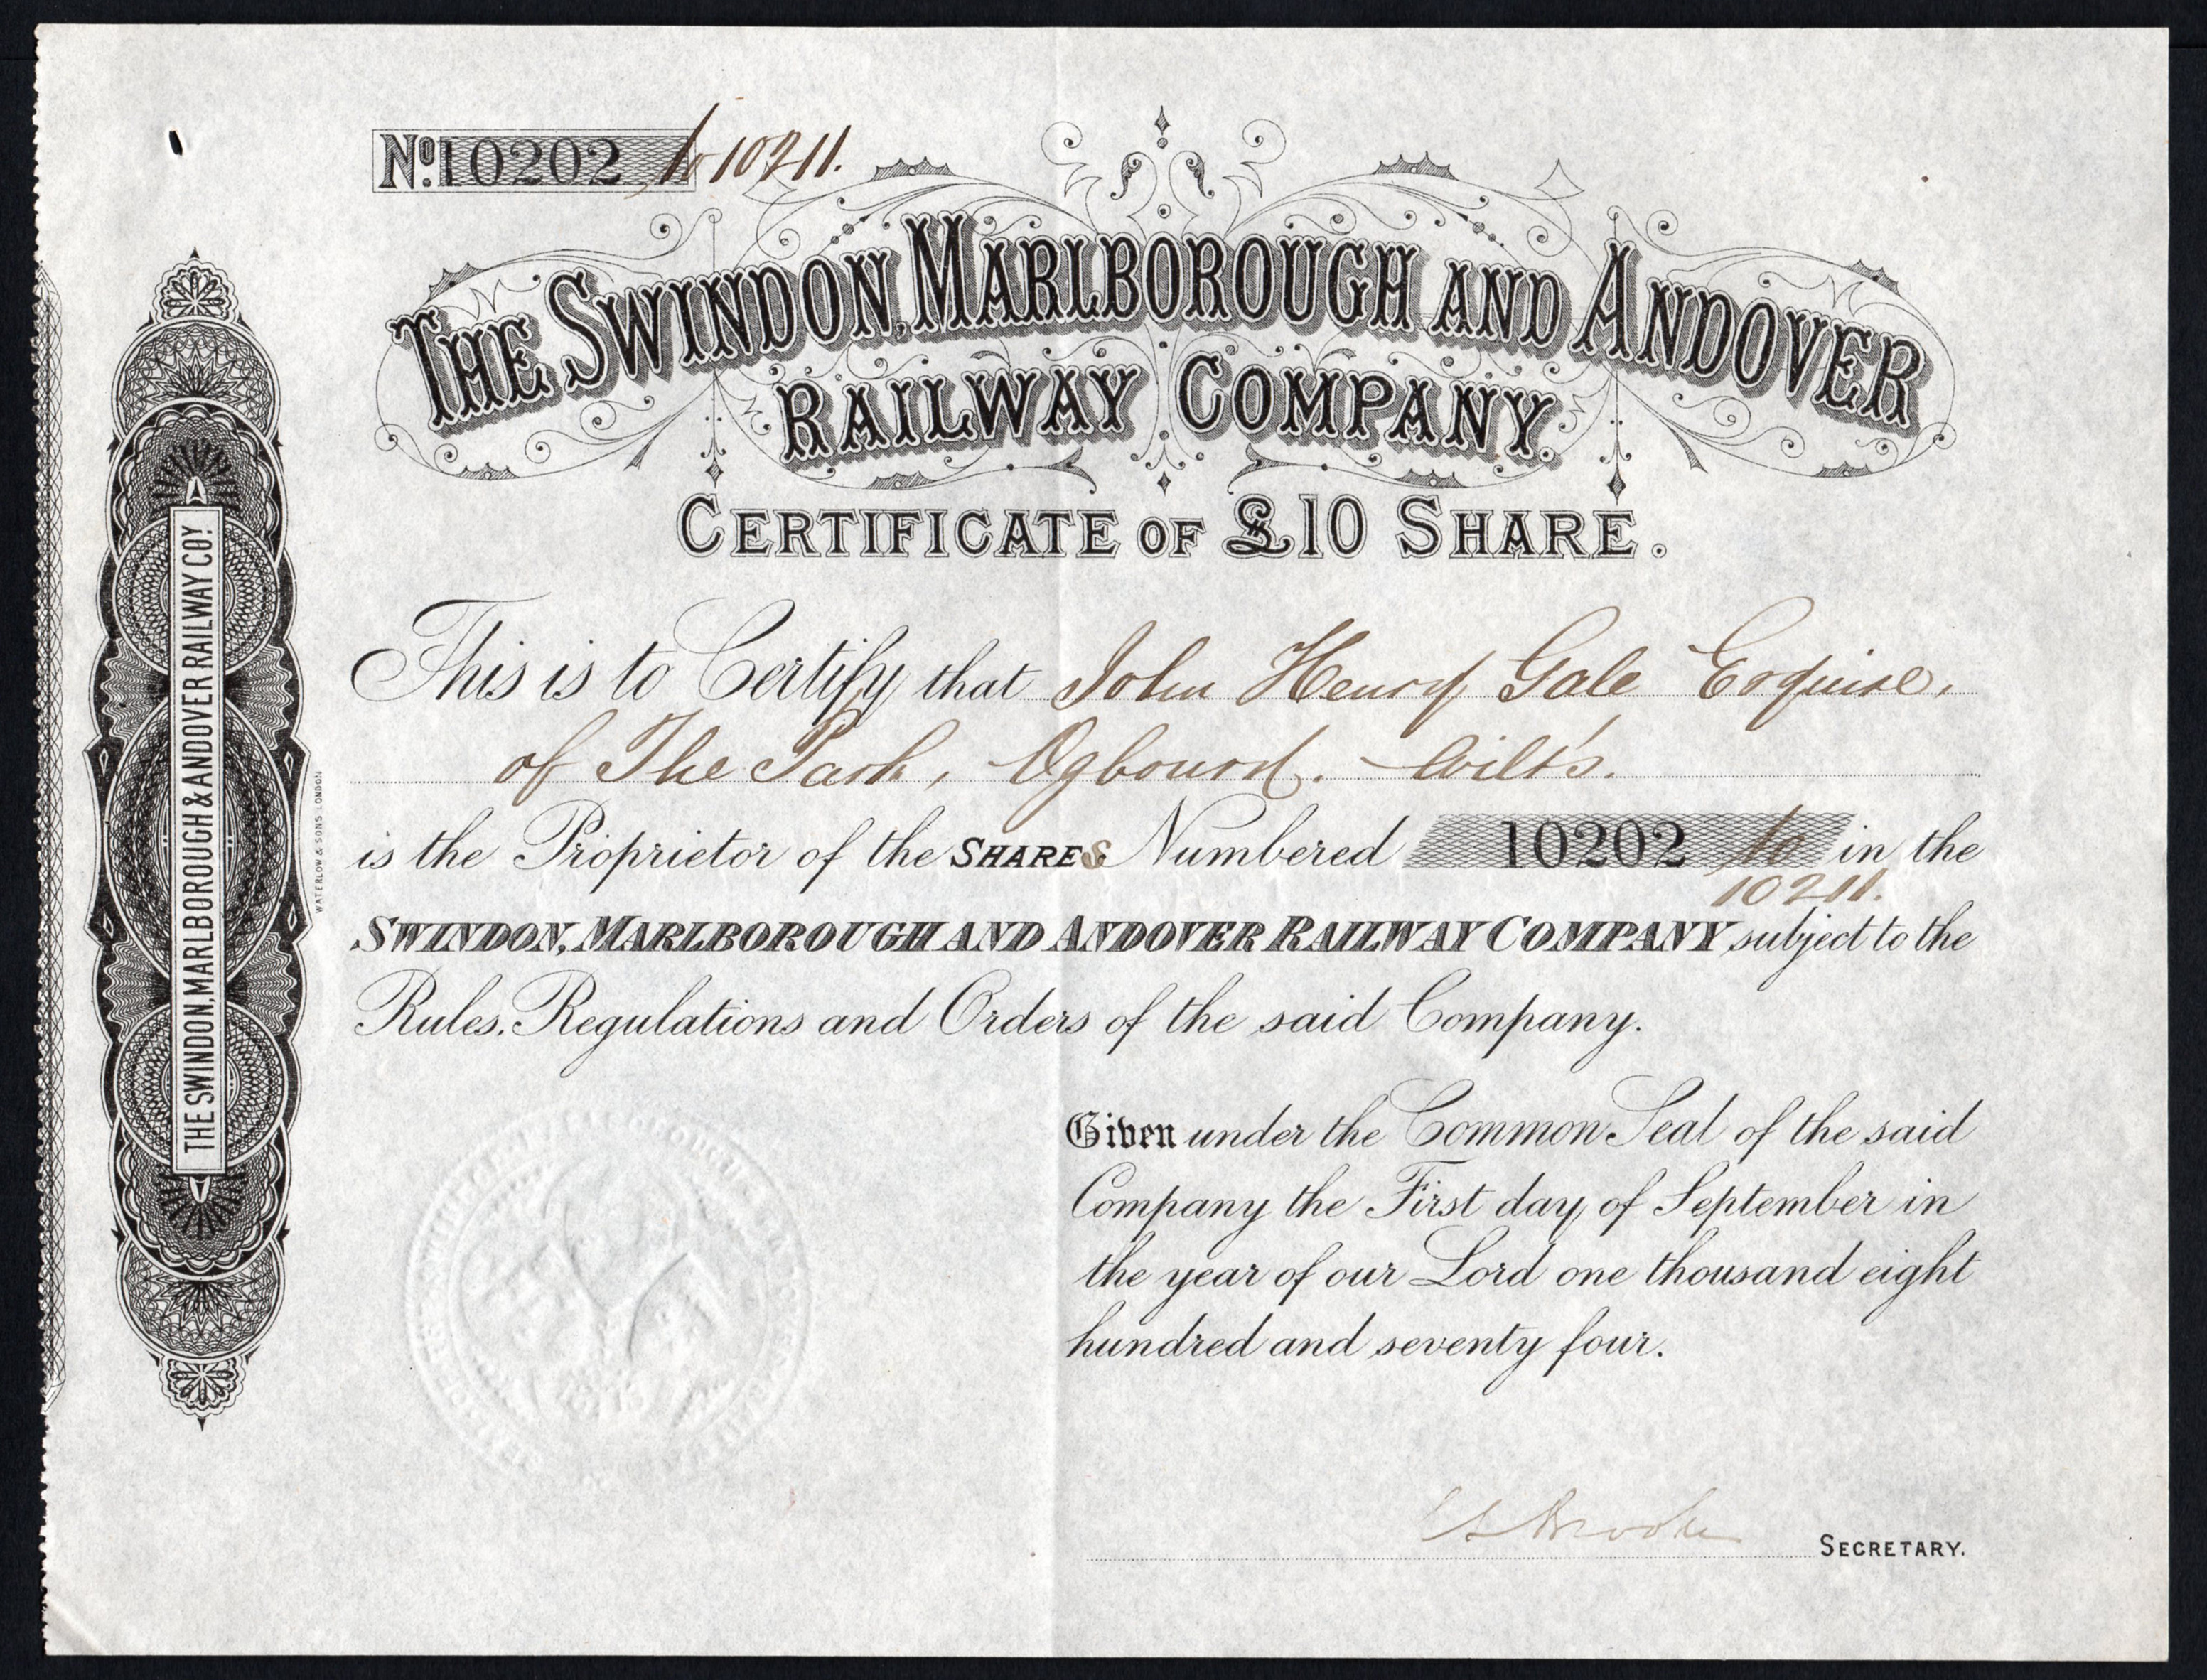 No. 10202 to 10211.
THE SWINDON, MARLBOROUGH AND ANDOVER
RAILWAY COMPANY.
CERTIFICATE OF £10 SHARE.
This is to Certify that John Henry Gale Esquire,
of The Park, Ogbourd. Wilts.
is the Proprietor of the SHARES Numbered 10202 to in the
10211.
SWINDON, MARLBOROUGH AND ANDOVER RAILWAY COMPANY subject to the
Rules, Regulations and Orders of the said Company.
Given under the Common Seal of the said
Company the First day of September in
the year of our Lord one thousand eight
hundred and seventy four.
Brooke
SECRETARY.
THE SWINDON, MARLBOROUGH & ANDOVER RAILWAY COY.
WATERLOW & SONS LONDON